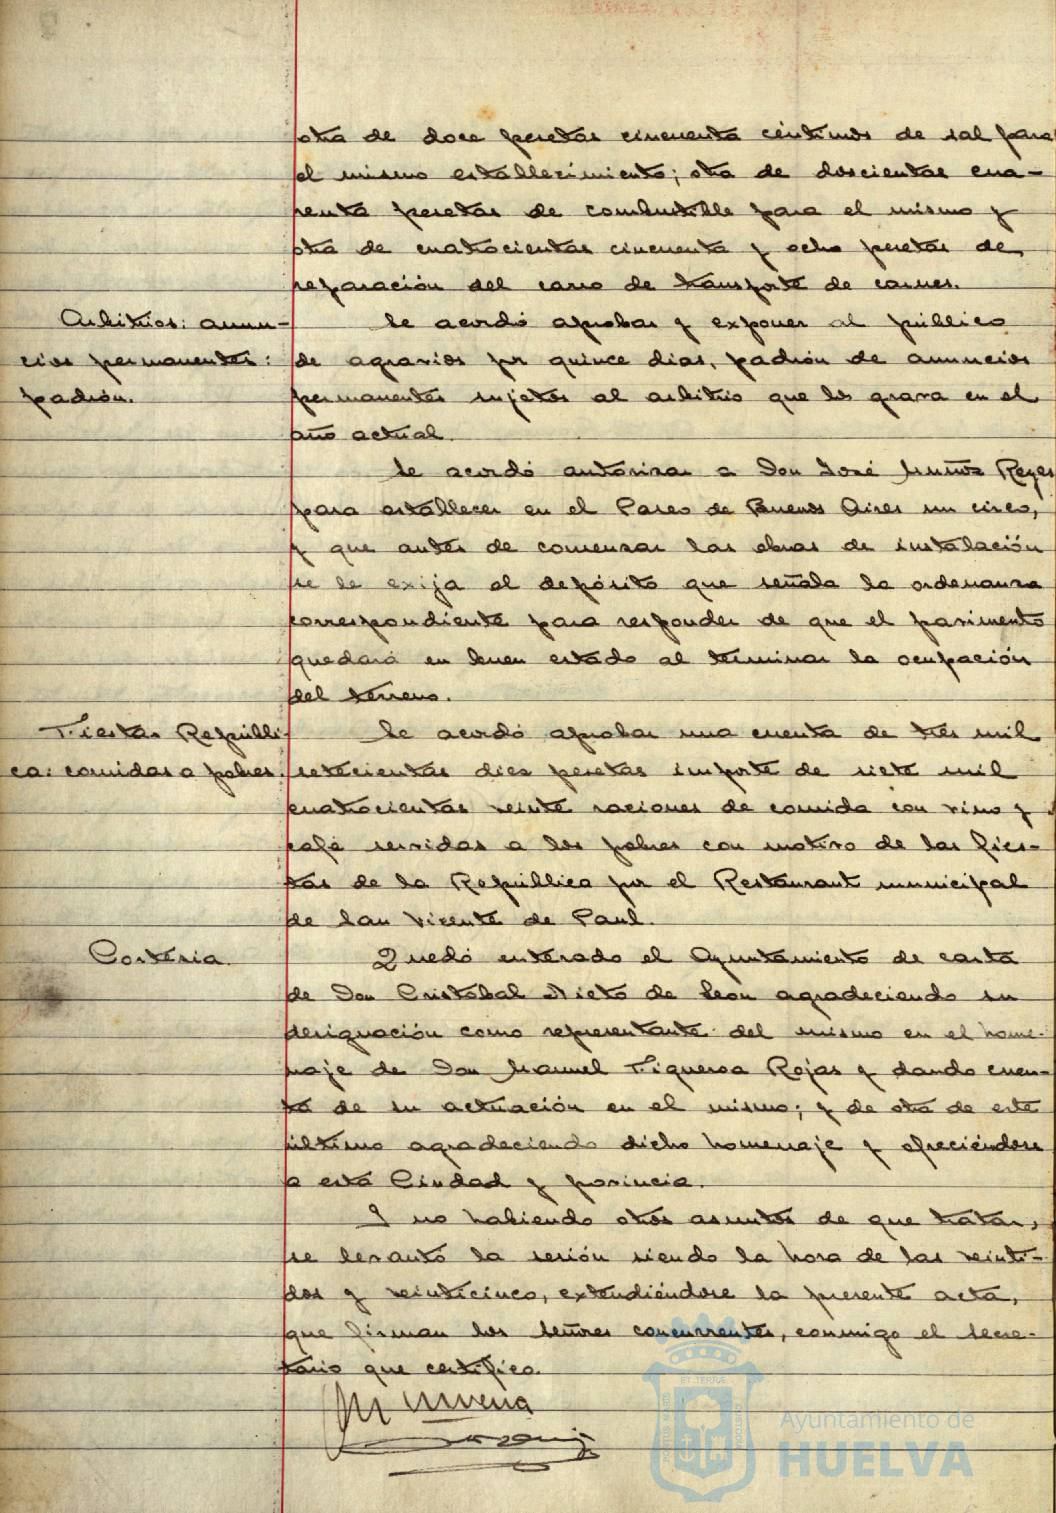 otra de doce pesetas cincuenta céntimos de sal para
el mismo establecimiento; otra de doscientas cua-
renta pesetas de combustible para el mismo y
otra de cuatrocientas cincuenta y ocho pesetas de
reparación del carro de transporte de carnes.
Arbitrios: anun-
cios permanentes:
padrón.
Se acordó aprobar y exponer al público
de agravios por quince días, padrón de anuncios
permanentes sujetos al arbitrio que los grava en el
año actual.
Se acordó autorizar a Don José Muñoz Reyes
para establecer en el Paseo de Buenos Aires un circo,
y que antes de comenzar las obras de instalación
se le exija el depósito que señala la ordenanza
correspondiente para responder de que el pavimento
quedará en buen estado al terminar la ocupación
del terreno.
Fiestas Repúbli-
ca: comidas a pobres.
Se acordó aprobar una cuenta de tres mil
setecientas diez pesetas importe de siete mil
cuatrocientas veinte raciones de comida con vino y
café servidas a los pobres con motivo de las fies-
tas de la República por el Restaurant municipal
de San Vicente de Paul.
Cortesía.
Quedó enterado el Ayuntamiento de carta
de Don Cristóbal Nieto de León agradeciendo su
designación como representante del mismo en el home-
naje de Don Manuel Figueroa Rojas y dando cuen-
ta de su actuación en el mismo; y de otra de este
último agradeciendo dicho homenaje y ofreciéndose
a esta Ciudad y provincia.
Y no habiendo otros asuntos de que tratar,
se levantó la sesión siendo la hora de las veinti-
dos y veinticinco, extendiéndose la presente acta,
que firman los señores concurrentes, conmigo el secre-
tario que certifico.
Ayuntamiento de
HUELVA